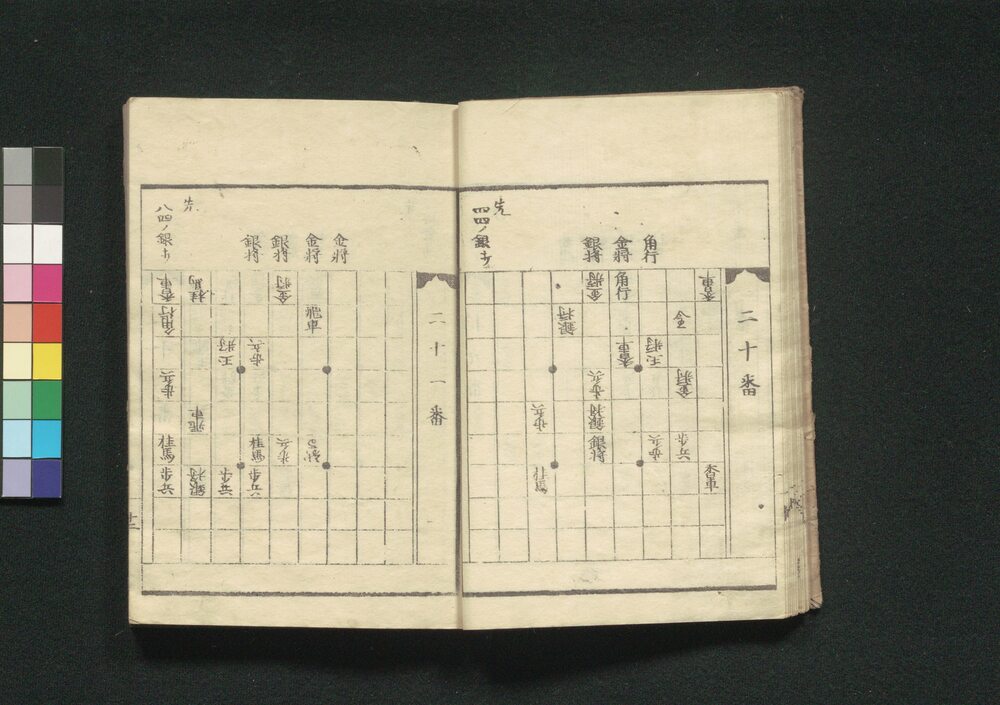 二十番
先
四四ノ銀打
角行
金将
銀将
香車
角行
金将
金
銀将
王将
香車
金将
歩兵
銀将
歩兵
歩兵
歩兵
銀将
香車
桂馬
二十一番
先
八四ノ銀打
金将
金将
銀将
銀将
金将
桂馬
香車
龍車
角行
歩兵
王将
歩兵
飛車
歩兵
桂馬
桂馬
歩兵
歩兵
銀将
歩兵
十二